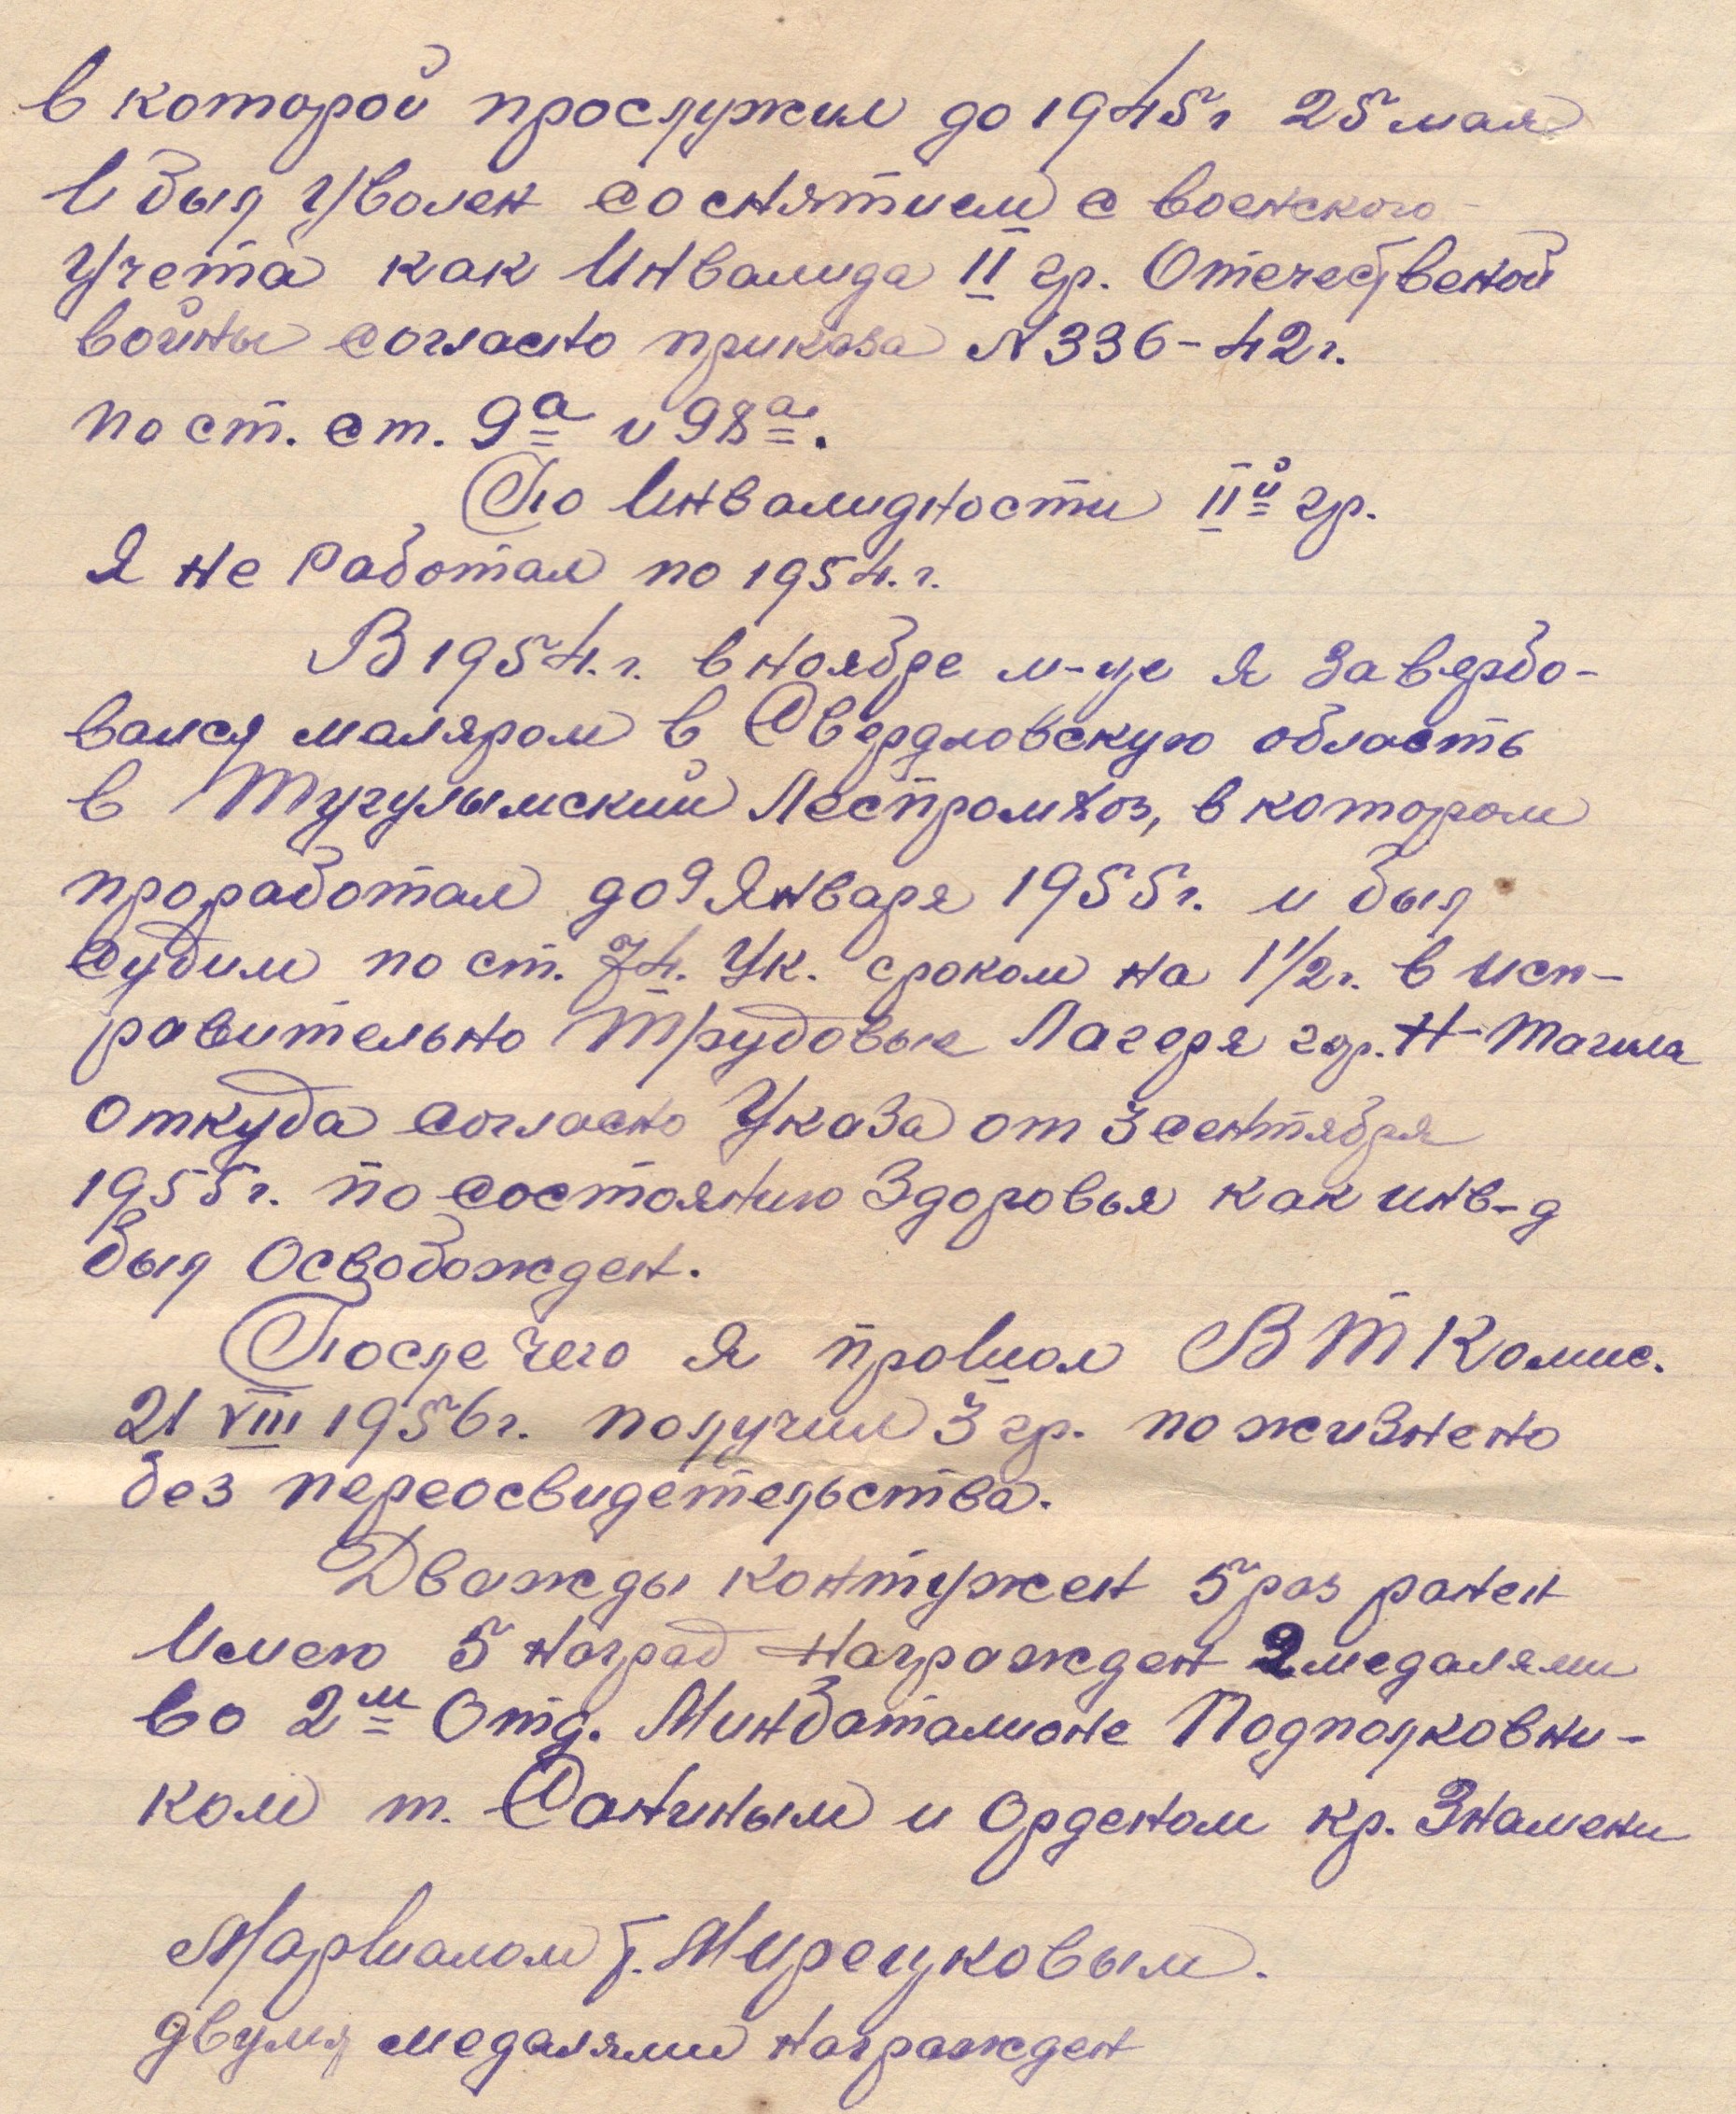 в которой прослужил до 1945г 25 мая
И был Уволен со снятием с военского
Учета как Инвалида II гр. Отечественой
войны согласно приказа N 336-42г.
по ст. ст. 9а и 98а.
По Инвалидности IIй гр.
Я не Работал по 1954.г.
В 1954.г. в ноябре м-це я завербо-
вался маляром в Свердловскую область
в Тугулымский Леспромхоз, в котором
проработал до 9 Января 1955г. и был
Судим по ст. 74. Ук. сроком на 1 1/2 г. в исп-
равительно Трудовые Лагеря гор. Н-Тагила
откуда согласно Указа от 3 сентября
1955г. по состоянию Здоровья как инв-д
был Освобожден.
После чего я прошол ВТКомис.
21 VIII 1956г. получил 3 гр. по жизнено
без переосвидетельства.
Дважды контужен 5 раз ранен
Имею 5 наград Награжден 2 медалями
во 2м Отд. Минбатальоне Подполковни-
ком т. Саниным и орденом кр. Знамени
Маршалом т. Мирецковым.
двумя медалями награжден